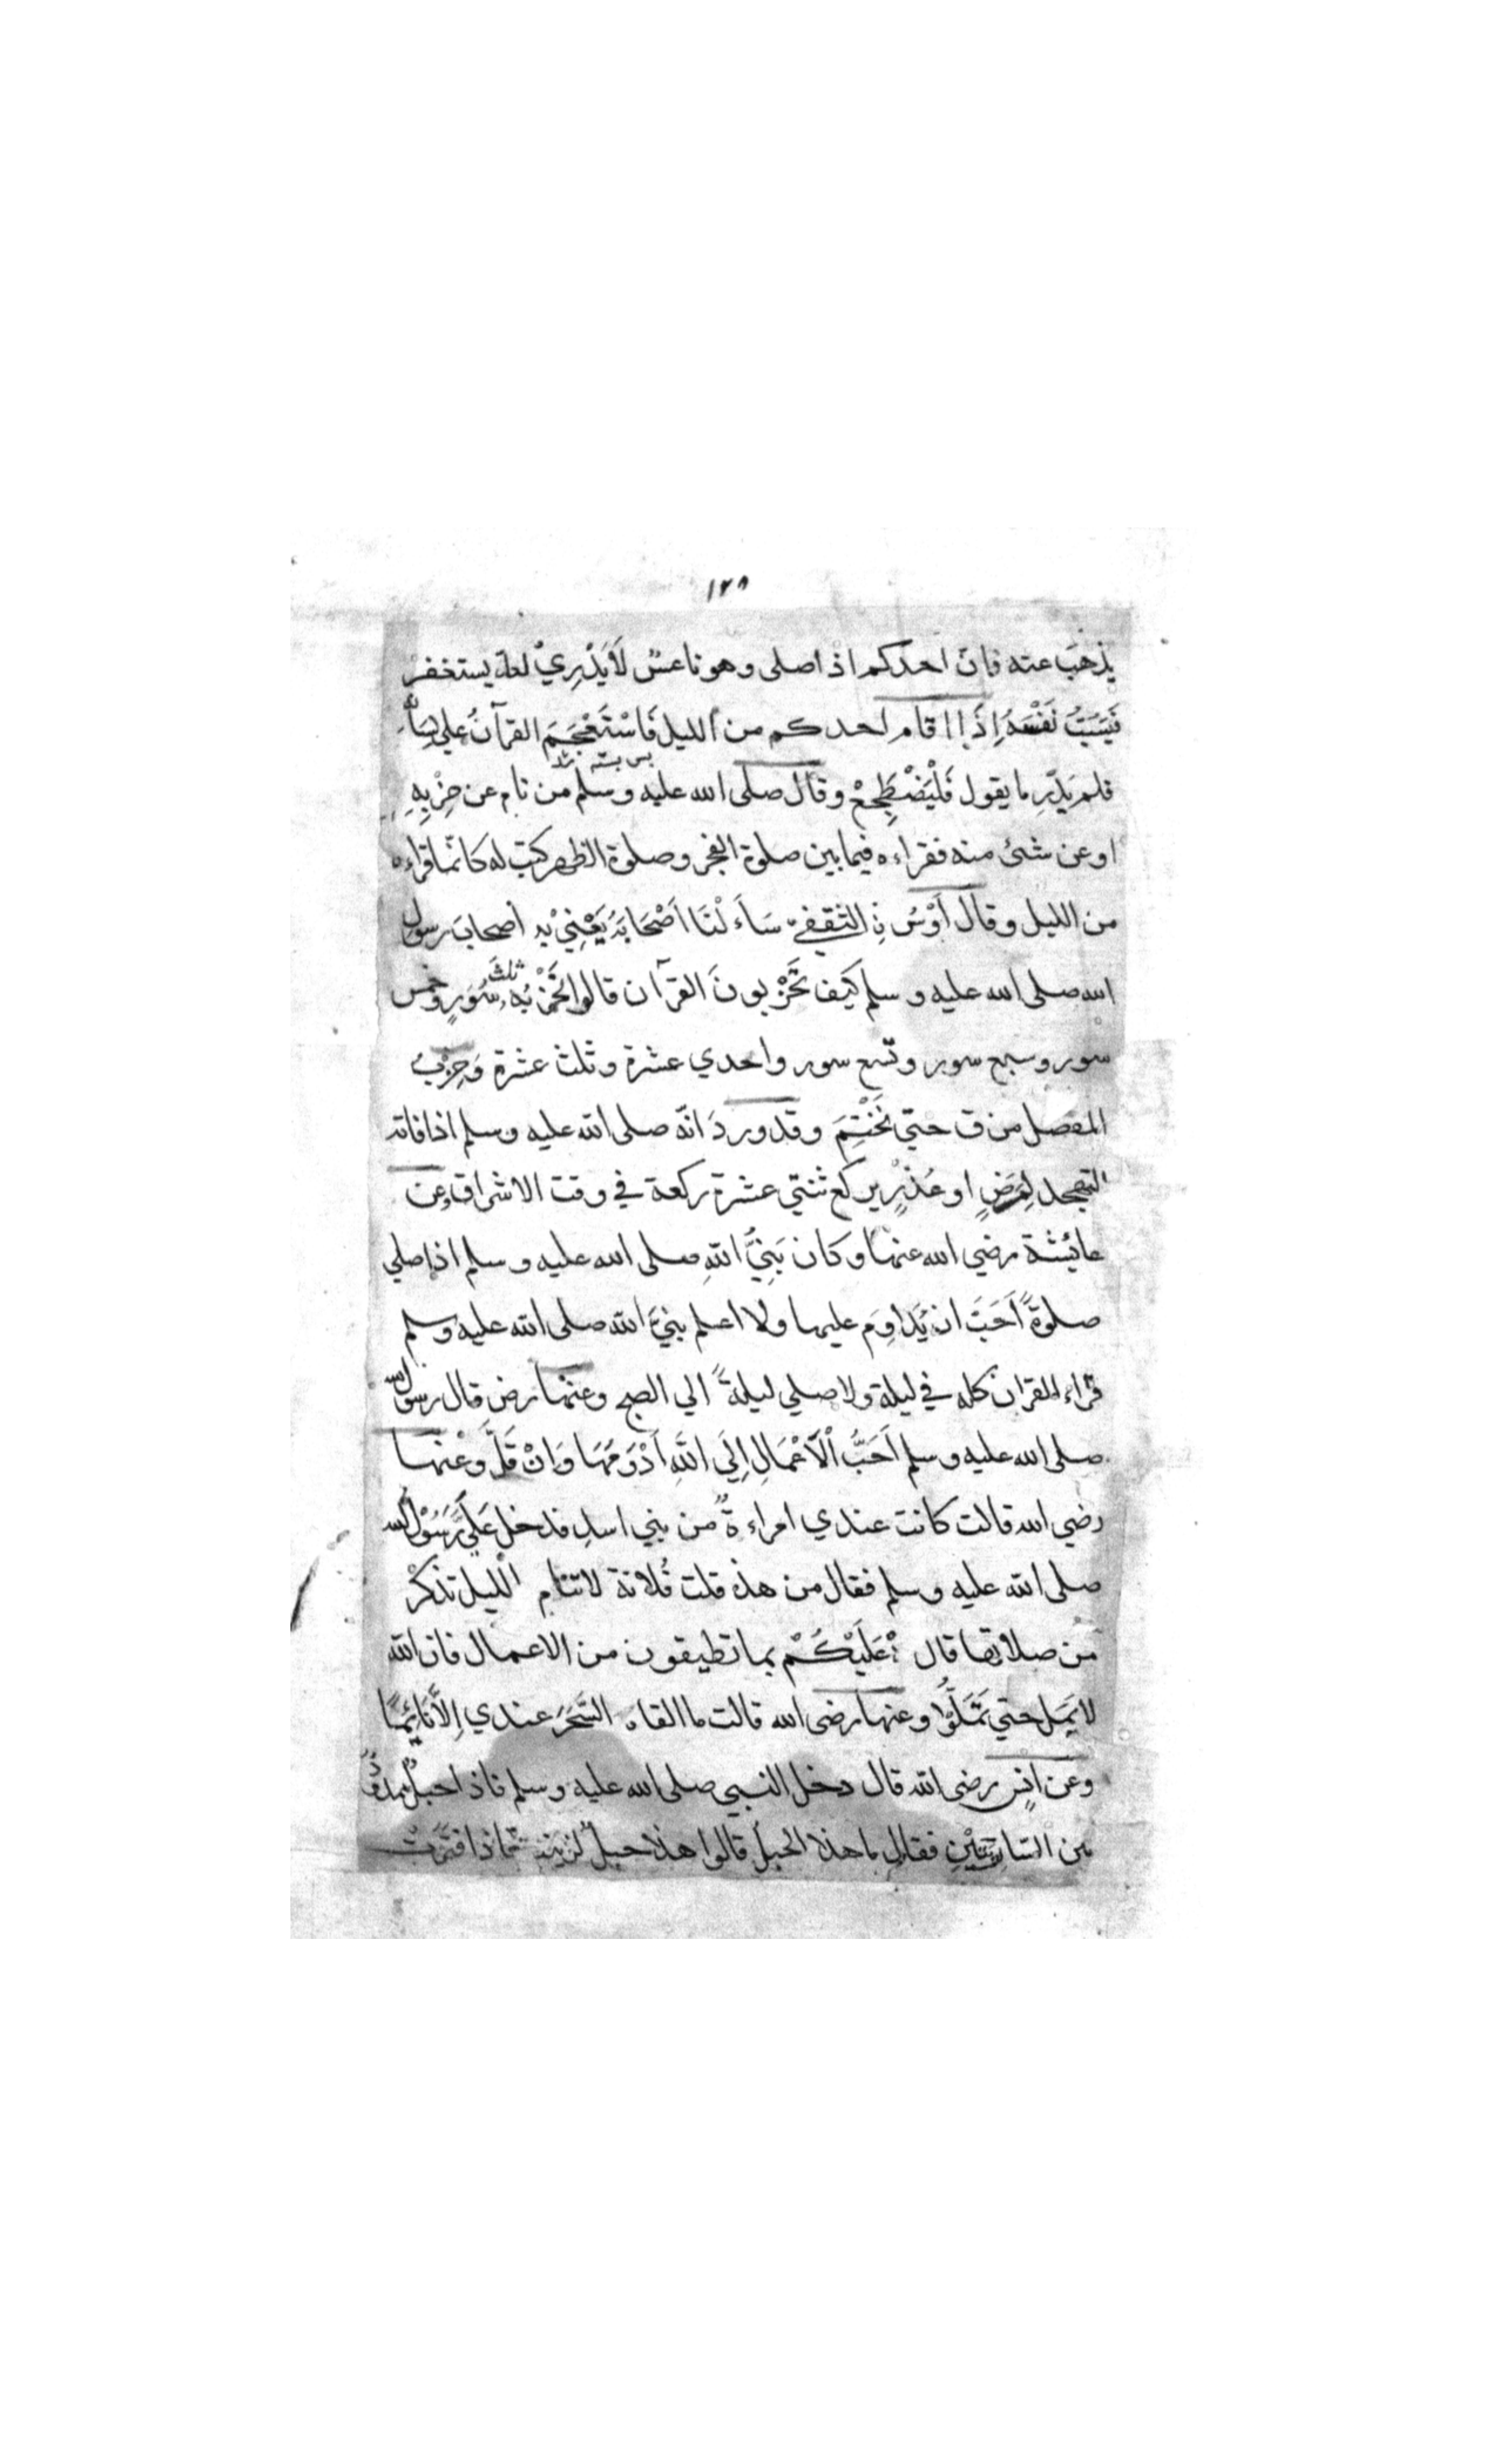 ١٢٨
يذهبَ عنه فانّ احدكم اذ اصلى وهو ناعسٌ لَا يَدْرِيْ لعله يستغفر
فَيَسُبُّ نَفْسَهُ اِذَا اقام احدكم من الليل فَاسْتَعْجَمَ القرآنُ علي لِسَانه
بس بسته شد
فلم يَدْرِ ما يقول فَلْيَضْطَجِعْ وقال صلى الله عليه وسلم من نام عن حِزْبِهِ
اوعن شئ منه فقراءه فيما بين صلوة الفجر وصلوة الظهر كتب له كانّما قراءه
من الليل وقال اَوْسُ الثقفي سَاَءلْنَا اَصْحَابَهُ يَعْنِيْ به اصحابَ رسول
الله صلى الله عليه وسلم كَيف تَحَزِّبونَ القرآن قالوا نُحَزِّبُه ثلثَ سُوَرٍ وخمس
سور وسبع سور وتسع سور واحدي عشرة وثلث عشرة وَحِزْبُ
المفصل من ق حتي نَخْتِمَ وقد وردَ انّه صلى الله عليه وسلم اذا فاته
التهجد لِمَرَضٍ او عُذْرٍ يركع ثنتي عشرة ركعة في وقت الاشراق وعن
عائشة رضي الله عنها وَكان نَبِيُّ اللهِ صلى الله عليه وسلم اذا صلي
صلوةً اَحَبَّ ان يُدَاوِمَ عليها ولا اعلم نبيَّ الله صلى الله عليه وسلم
قراء القران كله في ليلة ولا صلي ليلةً الي الصبح وعنها رض قال رسول الله
صلى الله عليه وسلم اَحَبُّ الْاَعْمَالِ اِلَى اللهِ اَدْوَمُهَا وَاِنْ قَلَّ وعنها
رضي الله قالت كانت عندي امراءةٌ من بني اسدٍ فدخل عَلَيَّ رَسُوْلُ الله
صلى الله عليه وسلم فقال من هذه قلت فُلانة لاتنام الليل تذكرْ
من صلاتها قال عَلَيْكُمْ بما تطيقون من الاعمال فان الله
لا يَمَلُّ حتي تَمَلُّوْا وعنها رضى الله قالت ما القاه السَّحَرُ عندي اِلَّا نَائِمًا
وعن انسٍ رضى الله قال دخل النبي صلى الله عليه وسلم فاذا حبلٌ ممدودٌ
بين السَّارِيَتَيْنِ فقال ما هذا الحبل قالوا هذا حبلٌ لزينب فاذا فَتَرَتْ